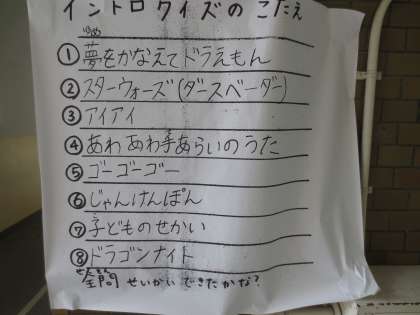 イントロクイズのこたえ
①夢をかなえてドラえもん
②スターウォーズ(ダースベーダー)
③アイアイ
④あわあわ手あらいのうた
⑤ゴーゴーゴー
⑥じゃんけんぽん
⑦子どものせかい
⑧ドラゴンナイト
全問せいかいできたかな?